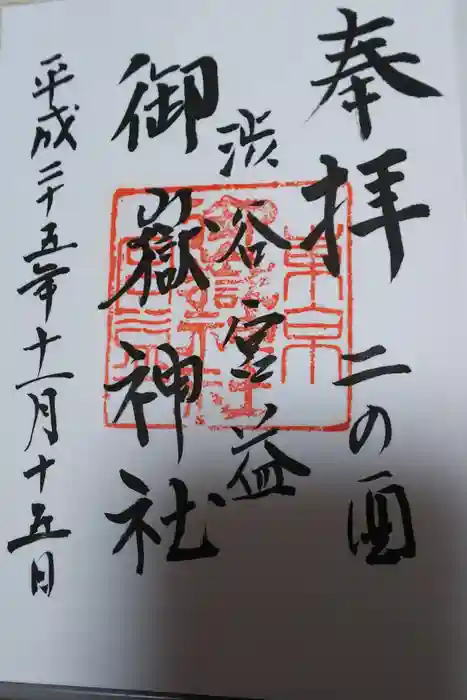 奉拝 二の酉
渋谷宮益
御嶽神社
平成二十五年十一月十五日